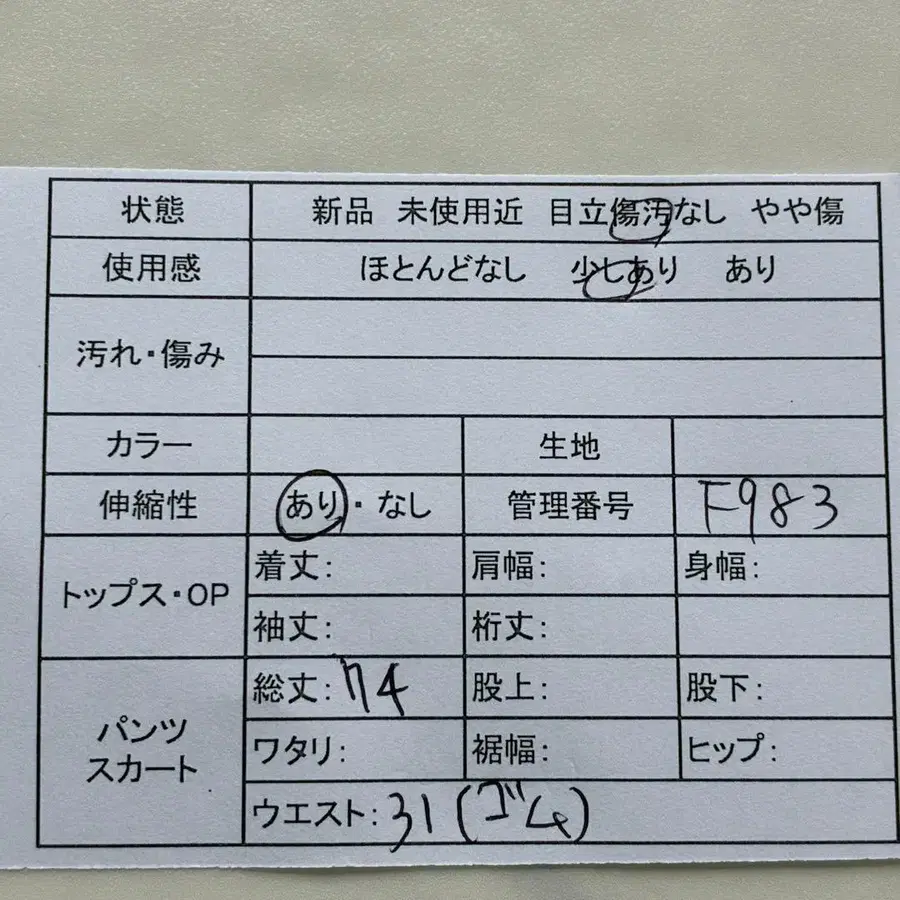 状態 新品 未使用近 目立傷汚なし やや傷
使用感 ほとんどなし 少しあり あり
汚れ・傷み
カラー 生地
伸縮性 あり・なし 管理番号 F983
トップス・OP
着丈: 肩幅: 身幅:
袖丈: 裄丈:
パンツ
スカート
総丈: 74 股上: 股下:
ワタリ: 裾幅: ヒップ:
ウエスト: 31 (ゴム)